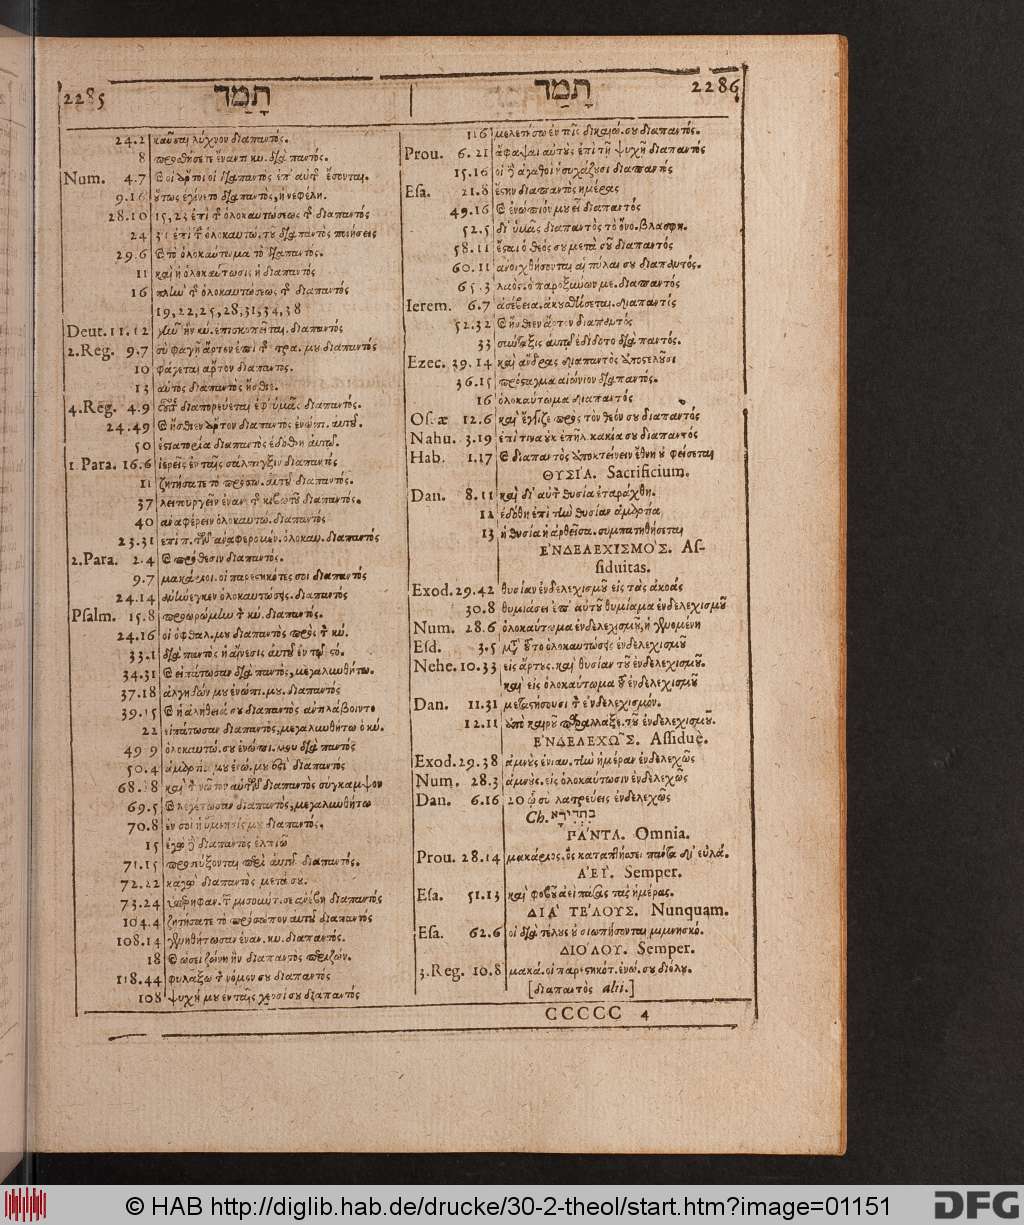 2285 תָּמַד
24.2 καῦσαι λύχνον διαπαντός.
8 προθήσετε ἔναντι κυ. διὰ παντός.
Num. 4.7 οἱ ἄρτοι οἱ διαπαντὸς ἐπ' αὐτ ἔσονται.
9.16 οὕτως ἐγίνετο διαπαντὸς, ἡ νεφέλη.
28.10 15, 23 ἐπὶ τ ὁλοκαυτώσεως τ διαπαντός
24 31 ἐπὶ τ ὁλοκαυτω. τοῦ διαπαντὸς ποιήσεις
29.6 τὸ ὁλοκαύτωμα τὸ διαπαντός.
11 καὶ ἡ ὁλοκαύτωσις ἡ διαπαντός
16 πλὴν τ ὁλοκαυτώσεως τ διαπαντός
19, 22, 25, 28, 31, 34, 38
Deut. 11.12 γῆν ἣν κύ. ἐπισκοπεῖται. διαπαντός
2.Reg. 9.7 σὺ φαγῇ ἄρτον ἐπὶ τ τρα. μου διαπαντός
10 φάγεται ἄρτον διαπαντός.
13 αὐτὸς διαπαντὸς ἤσθιε.
4.Reg. 4.9 διαπορεύεται ἐφ' ὑμᾶς διαπαντός.
24.49 ἤσθιεν ἄρτον διαπαντὸς ἐνώπ. αὐτοῦ.
50 ἑστιατορία διαπαντὸς ἐδόθη αὐτῷ.
1 Para. 16.6 ἱερεῖς ἐν ταῖς σάλπιγξιν διαπαντός
11 ζητήσατε τὸ πρόσω. αὐτοῦ διαπαντός.
37 λειτουργεῖν ἐναν τ κιβωτοῦ διαπαντός.
40 ἀναφέρειν ὁλοκαυτω. διαπαντός
23.31 ἐπὶ π. τῶν ἀναφερομέν. ὁλοκαυ. διαπαντός
2.Para. 2.4 πρόθεσιν διαπαντός.
9.7 μακάριοι. οἱ παρεστηκότες σοι διαπαντός
24.14 ἀνήνεγκεν ὁλοκαυτώσεις. διαπαντός
Psalm. 15.8 προωρώμην τ κύ. διαπαντός.
24.16 οἱ ὀφθαλ. μου διαπαντὸς πρὸς τ κύ.
33.1 διαπαντὸς ἡ αἴνεσις αὐτοῦ ἐν τῷ στό.
34.31 εἰπάτωσαν διαπαντός, μεγαλυνθήτω.
37.18 ἀλγηδών μου ἐνώπι. μου. διαπαντός
39.15 ἡ ἀλήθειά σου διαπαντὸς ἀντιλάβοιντο
22 εἰπάτωσαν διαπαντὸς, μεγαλυνθήτω ὁ κύ.
49 9 ὁλοκαυτώ. σου ἐνώπι. μου διαπαντός
50.4 ἁμαρτ. μου ἐνώ. μου ἐστὶ διαπαντός
68.28 καὶ τ νῶτον αὐτῶν διαπαντὸς σύγκαμψον
69.5 λεγέτωσαν διαπαντὸς, μεγαλυνθήτω
70.8 ἐν σοὶ ἡ ὕμνησίς μου διαπαντός.
15 ἐγὼ διαπαντὸς ἐλπιῶ
71.15 προσεύξονται περὶ αὐτοῦ διαπαντός.
72.22 κἀγὼ διαπαντὸς μετὰ σοῦ.
73.24 ὑπερηφαν. τ μισούντ. σε ἀνέβη διαπαντός
104.4 ζητήσατε τὸ πρόσωπον αὐτοῦ διαπαντός
108.14 γενηθήτωσαν ἐναν. κυ. διαπαντός.
18 ὡσεὶ ζώνη ἣν διαπαντὸς περιζών.
118.44 φυλάξω τ νόμον σου διαπαντός
108 ψυχή μου ἐν ταῖς χερσί σου διαπαντός
תָּמַד 2286
116 μελετήσω ἐν τοῖς δικαιώ. σου διαπαντός.
Prou. 6.21 ἄφαψαι αὐτοὺς ἐπὶ τῇ ψυχῇ διαπαντὸς
15.16 οἱ ἀγαθοὶ ἡσυχάζουσι διαπαντός
Esa. 21.8 ἔστην διαπαντὸς ἡμέρας
49.16 ἐνώπιόν μου εἶ διαπαντός
52.5 δι' ὑμᾶς διαπαντὸς τὸ ὄνο. βλασφη.
58.11 ἔσται ὁ θεός σου μετὰ σοῦ διαπαντός
60.11 ἀνοιχθήσονται αἱ πύλαι σου διαπαντός.
65.3 λαὸς. ὁ παροξύνων με. διαπαντός
Ierem. 6.7 ἀσέβεια. ἀκουσθήσεται. διαπαντός
52.32 ἤσθιεν ἄρτον διαπαντός
33 σύνταξις αὐτῷ ἐδίδοτο διαπαντός.
Ezec. 39.14 καὶ ἄνδρας διαπαντὸς ἀποστελοῦσι
36.15 πρόσταγμα αἰώνιον διαπαντός.
16 ὁλοκαύτωμα διαπαντός
Osææ 12.6 καὶ ἔγγιζε πρὸς τὸν θεόν σου διαπαντός
Nahu. 3.19 ἐπὶ τίνα οὐκ ἐπῆλ. κακία σου διαπαντός
Hab. 1.17 διαπαντὸς ἀποκτείνειν ἔθνη οὐ φείσεται
ΘΥΣΙΑ. Sacrificium.
Dan. 8.11 καὶ δι' αὐτ θυσία ἐταράχθη.
12 ἐδόθη ἐπὶ τὴν θυσίαν ἁμαρτία
13 ἡ θυσία ἡ ἀρθεῖσα. συμπατηθήσεται
ἘΝΔΕΛΕΧΙΣΜΟΣ. As-
siduitas.
Exod. 29.42 θυσίαν ἐνδελεχισμοῦ εἰς τὰς ἀκοάς
30.8 θυμιάσει ἐπ' αὐτοῦ θυμίαμα ἐνδελεχισμοῦ
Num. 28.6 ὁλοκαύτωμα ἐνδελεχισμοῦ, ἡ γενομένη
Esd. 3.5 μετὰ τοῦτο ὁλοκαυτώσεις ἐνδελεχισμοῦ
Nehe. 10.33 εἰς ἄρτους. καὶ θυσίαν τοῦ ἐνδελεχισμοῦ.
καὶ εἰς ὁλοκαύτωμα τοῦ ἐνδελεχισμοῦ
Dan. 11.31 μεταστήσουσι τ ἐνδελεχισμόν.
12.11 ἀπὸ καιροῦ παραλλάξε. τοῦ ἐνδελεχισμοῦ.
ἘΝΔΕΛΕΧΩΣ. Assiduè.
Exod. 29.38 ἀμνοὺς ἐνιαυ. τὴν ἡμέραν ἐνδελεχῶς
Num. 28.3 ἀμνούς. εἰς ὁλοκαύτωσιν ἐνδελεχῶς
Dan. 6.16 20 ᾧ σὺ λατρεύεις ἐνδελεχῶς
Ch. בִּתְדִירָא
ΠΑΝΤΑ. Omnia.
Prou. 28.14 μακάριος. ὃς καταπτήσσει πάντα δι' εὐλά.
ἈΕΙ. Semper.
Esa. 51.13 καὶ φοβοῦ ἀεὶ πάσας τὰς ἡμέρας.
ΔΙΑ ΤΕΛΟΥΣ. Nunquam.
Esa. 62.6 οἳ διὰ τέλους οὐ σιωπήσονται μιμνησκό.
ΔΙΟΛΟΥ. Semper.
3.Reg. 10.8 μακά. οἱ παρεστηκότ. ἐνώ. σου διόλου.
[διαπαντός alii.]
CCCCC 4
© HAB http://diglib.hab.de/drucke/30-2-theol/start.htm?image=01151 DFG